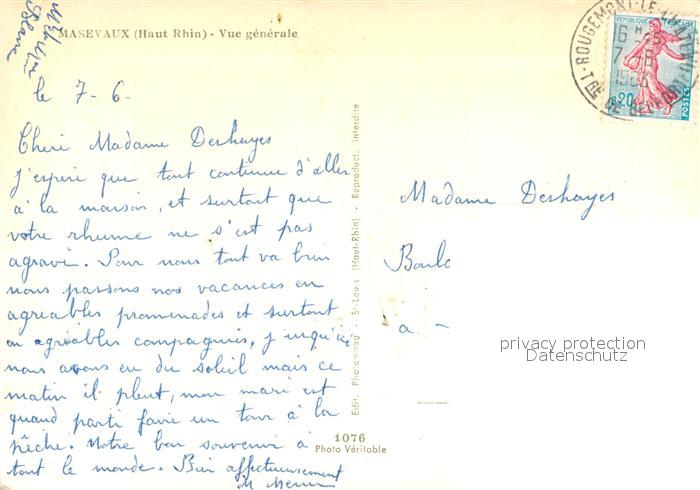 MASEVAUX (Haut Rhin) - Vue générale
le 7-6-
Cheri Madame Deshayes
J'espère que tout continue d'aller
à la maison, et surtout que
votre rhume ne s'est pas
agravé. Pour nous tout va bien
nous passons nos vacances en
agréables promenades et surtout
en agréables compagnies, j'usqu'ici
nous avons eu du soleil mais ce
matin il pleut, mon mari est
quand parti faire un tour à la
pêche. Notre bon souvenir à
tout le monde. Bien affectueusement
M
Edit. Photomag - St-Louis (Haut-Rhin) - Reproduct. interdite
1076
Photo Véritable
REPUBLIQUE FRANÇAISE
0,20
POSTES
ROUGEMONT-LE-CHATEAU
TRE DE BELFORT
Madame Deshayes
Boulo
a -
privacy protection
Datenschutz